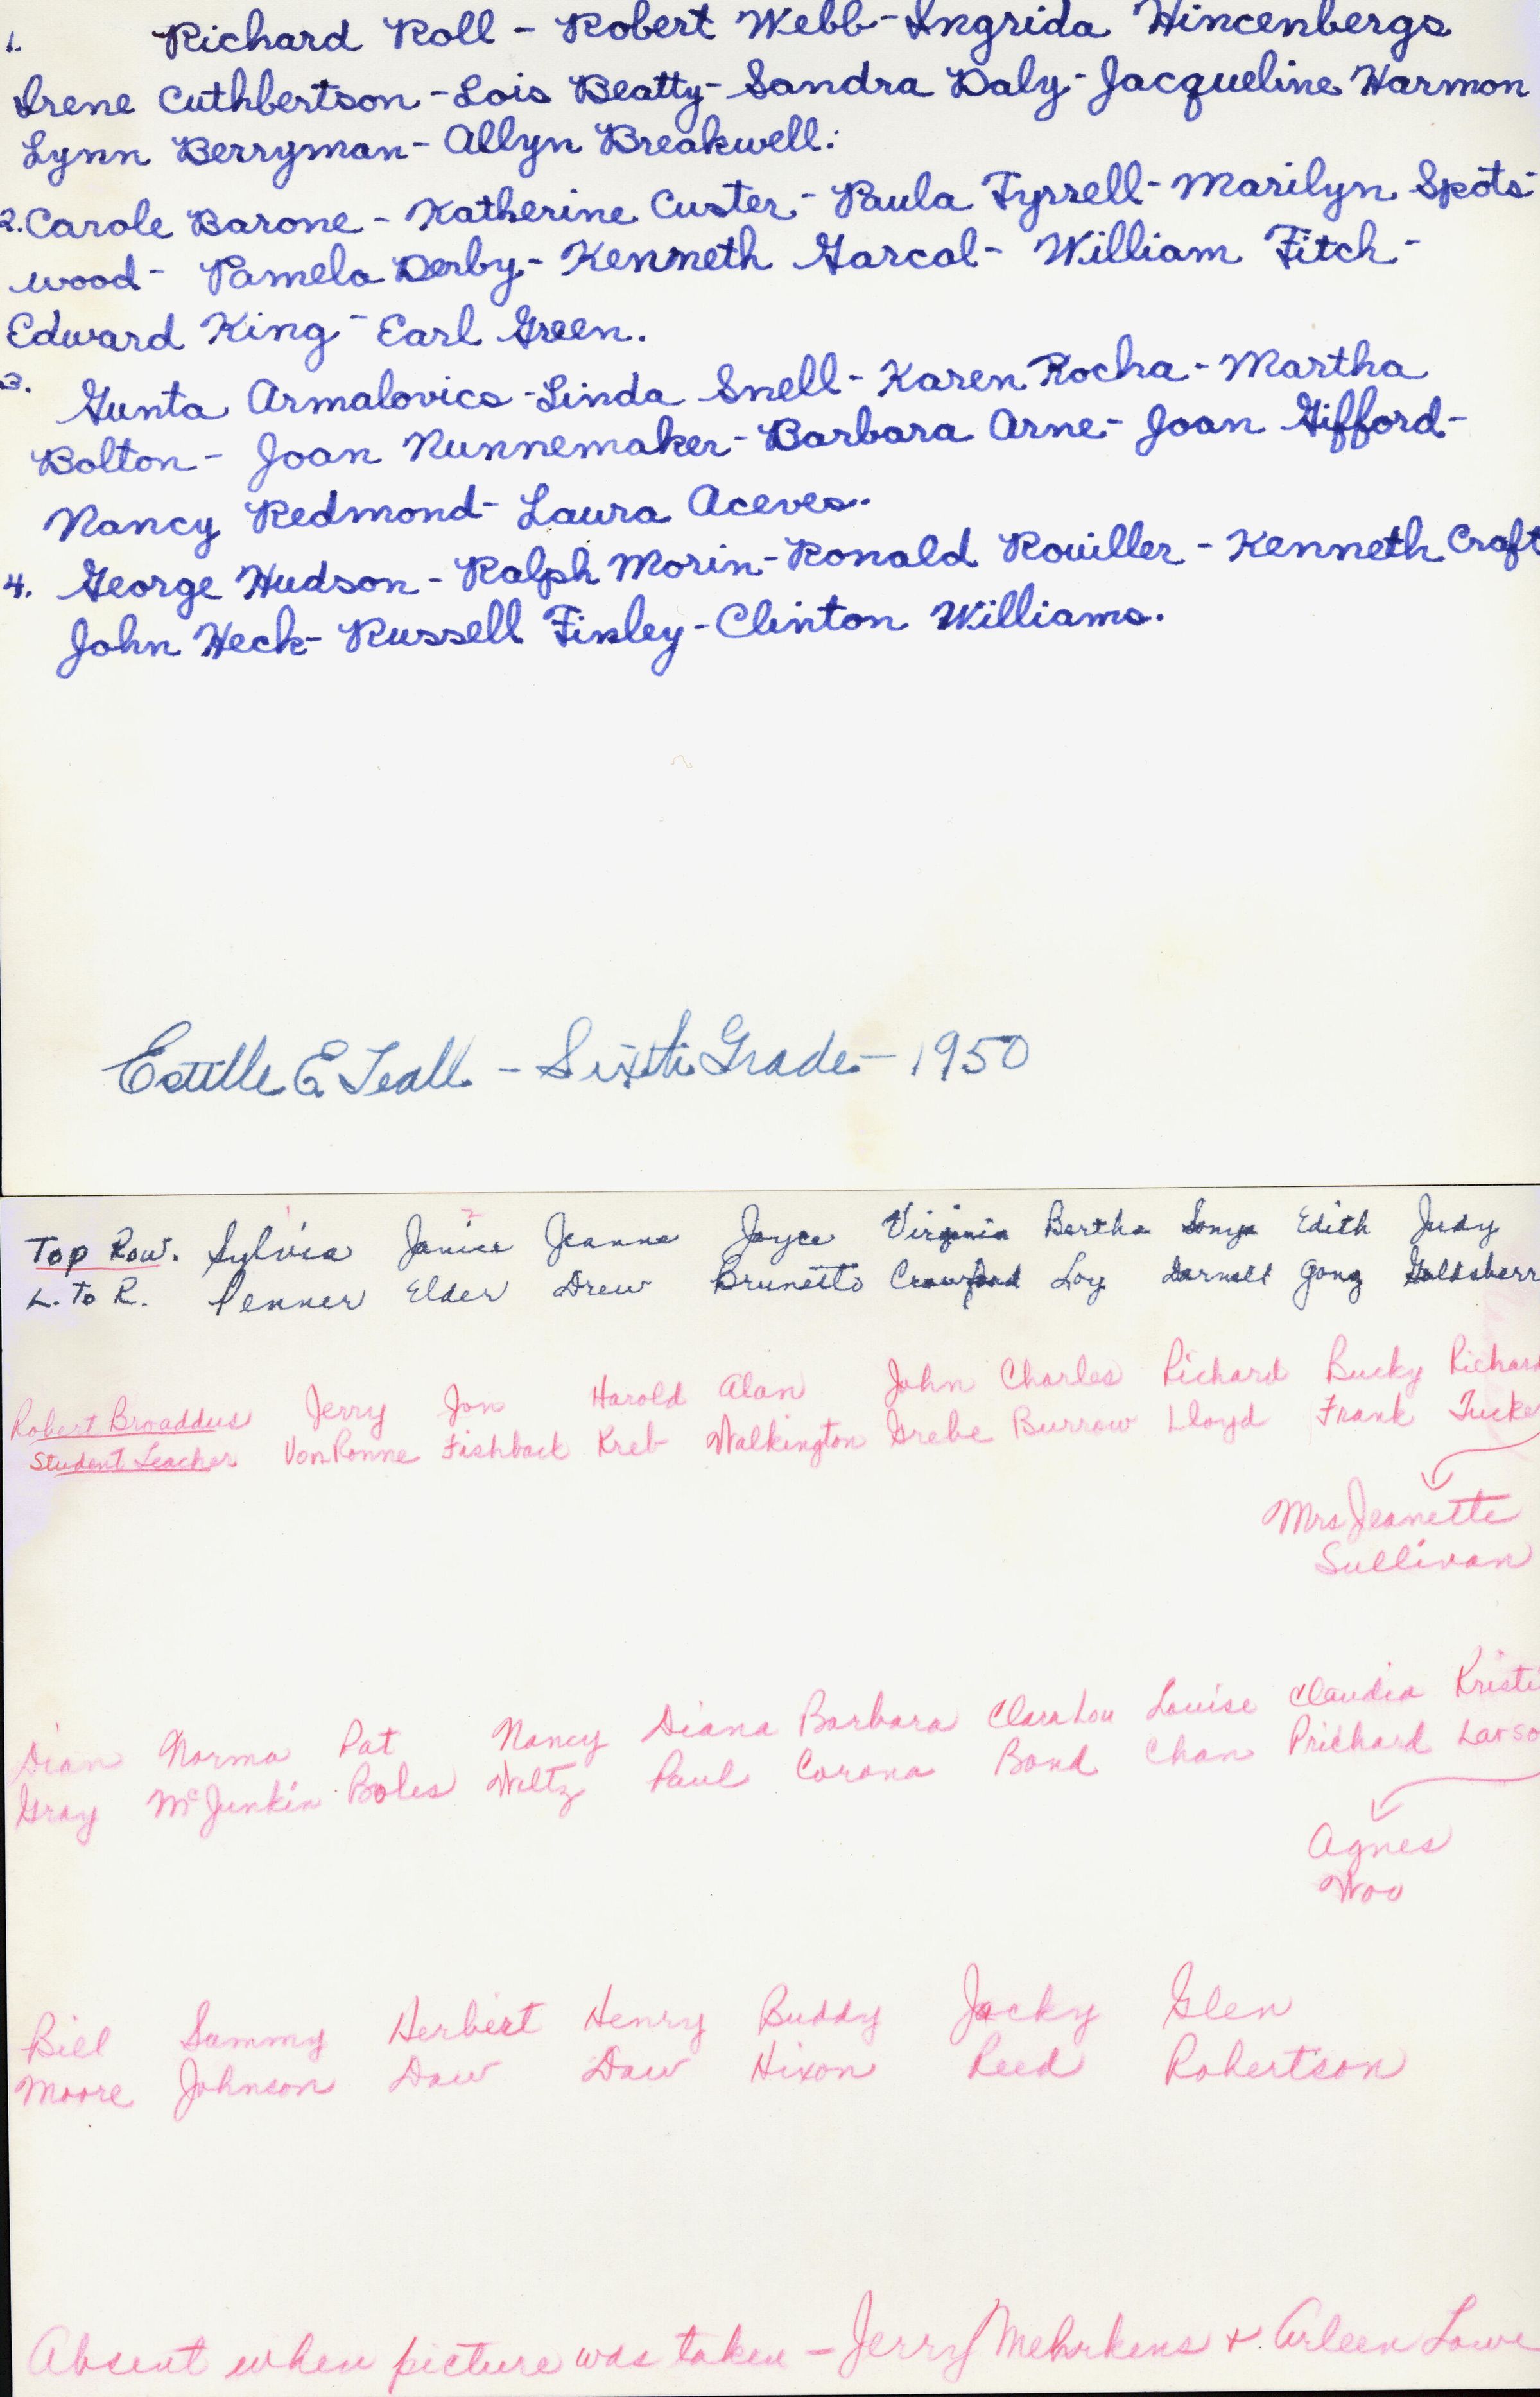 1. Richard Roll - Robert Webb - Ingrida Hincenbergs
Irene Cuthbertson - Lois Beatty - Sandra Daly - Jacqueline Harmon
Lynn Berryman - Allyn Breakwell.
2. Carole Barone - Katherine Custer - Paula Tyrrell - Marilyn Spots-
wood - Pamela Derby - Kenneth Garcal - William Fitch -
Edward King - Earl Green.
3. Gunta Armalovics - Linda Snell - Karen Rocha - Martha
Bolton - Joan Nunnemaker - Barbara Arne - Joan Gifford -
Nancy Redmond - Laura Aceves.
4. George Hudson - Ralph Morin - Ronald Rouiller - Kenneth Craft
John Heck - Russell Finley - Clinton Williams.
Estelle E Teall - Sixth Grade - 1950
Top Row. Sylvia Janice Jeanne Joyce Virginia Bertha Sonya Edith Judy
L. to R. Penner Elder Drew Brunetto Crawford Loy Darnell Gong Goldsberr
Robert Broaddus Jerry Jon Harold Alan John Charles Richard Bucky Richard
Student Teacher VonRonne Fishback Kreb Walkington Grebe Burrow Lloyd Frank Tucke
Mrs Jeanette
Sullivan
Dian Norma Pat Nancy Diana Barbara Clara Lou Louise Claudia Kristi
Gray McJunkin Boles Weltz Paul Corona Bond Chan Prichard Larso
Agnes
Woo
Bill Sammy Herbert Henry Buddy Jacky Glen
Moore Johnson Daw Daw Hixon Reed Robertson
Absent when picture was taken - Jerry Mehrkens & Arleen Lowe